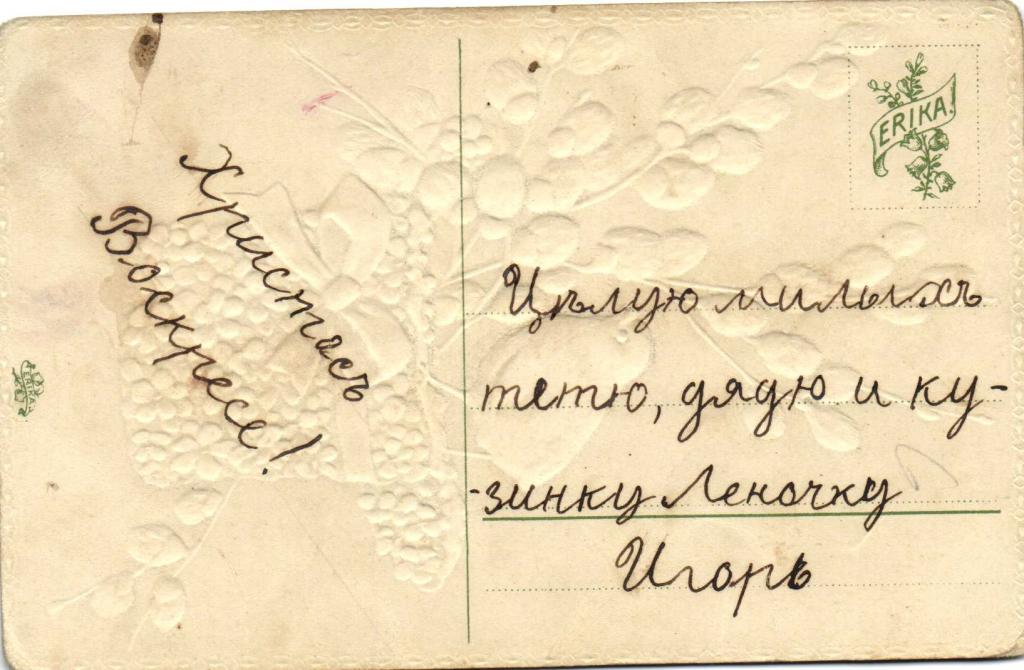 Христосъ
Воскресе!
ERIKA!
Цѣлую милыхъ
тетю, дядю и ку-
-зинку Леночку
Игорь
ERIKA